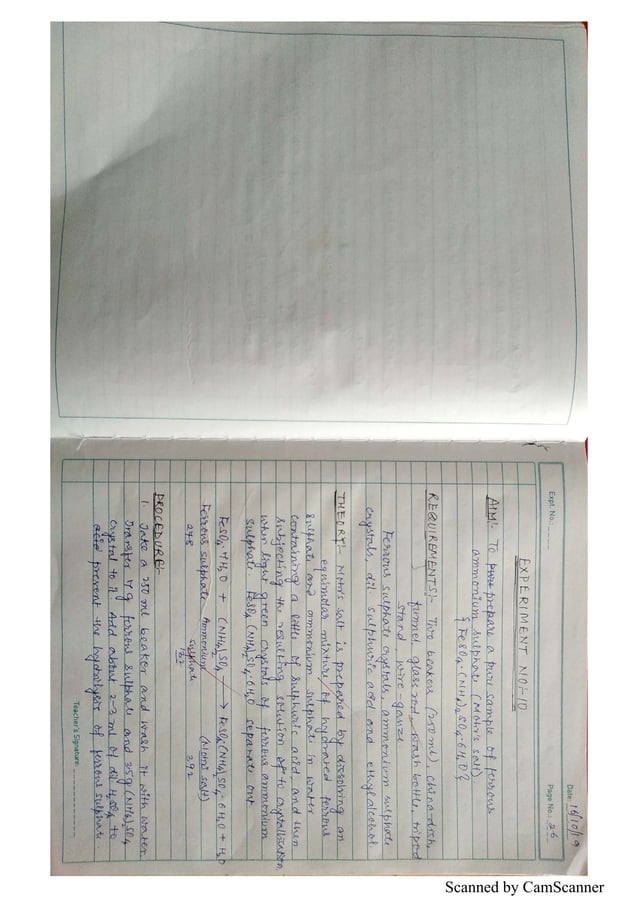 Expt. No.:
Date: 16/10/19
Page No.: 26
EXPERIMENT NO:-10
AIM:- To prepare a pure sample of ferrous
ammonium sulphate (Mohr's salt)
{FeSO4.(NH4)2SO4.6H2O}
REQUIREMENTS:- Two beakers (250 ml), china-dish,
funnel, glass rod, wash bottle, tripod
stand, wire-gauze
Ferrous sulphate crystals, ammonium sulphate
crystals, dil sulphuric acid and ethyl alcohol.
THEORY:- Mohr's salt is prepared by dissolving an
equimolar mixture of hydrated ferrous
sulphate and ammonium sulphate in water
containing a little of sulphuric acid and then
subjecting the resulting solution to crystallisation
when light green crystals of ferrous ammonium
sulphate FeSO4(NH4)2SO4.6H2O separate out
FeSO4.7H2O + (NH4)2SO4 → FeSO4(NH4)2SO4.6H2O + H2O
Ferrous sulphate Ammonium sulphate (Mohr's salt)
278 132 392
PROCEDURE:-
1. Take a 250 ml beaker and wash it with water.
Transfer 7g ferrous sulphate and 3.5g (NH4)2SO4
crystal to it. Add about 2-3 ml of dil H2SO4 to
prevent the hydrolysis of ferrous sulphate.
Teacher's Signature:
Scanned by CamScanner